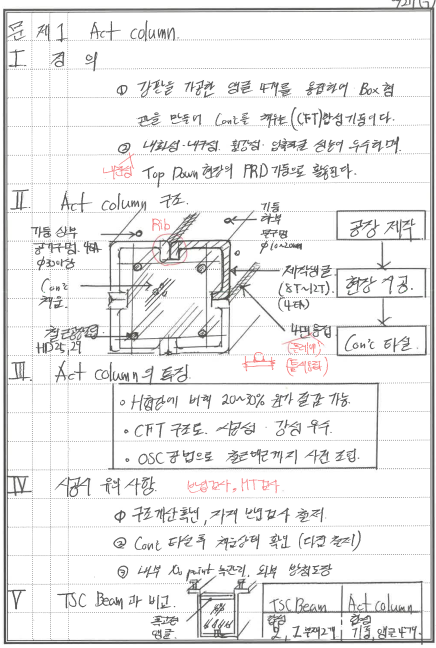 문제1 Act column.
I. 정의
① 강판을 가공한 앵글 4개를 용접하여 Box형
관을 만들어 Con'c를 채우는 (CFT)합성기둥이다.
② 내화성·내구성, 휨강성·압축력 성능이 우수하며
내진성
Top Down 현장의 PRD 기둥으로 활용된다.
II. Act column 구조.
Rib
기둥 상부
공기구멍. 4EA
Φ30이상
Con'c
채움
철근
HD25, 29
기둥
하부
Φ10~20mm
제작앵글
(8T~12T).
(4EA)
4면용접
공장 제작
현장 시공.
Con'c 타설.
III. Act column의 특징.
• H형강에 비해 20~30% 원가 절감 가능.
• CFT 구조로. 시공성·강성 우수.
• OSC 공법으로 철근배근까지 사전 조립.
IV. 시공시 유의 사항.
반입검사, HT검사.
① 구조계산확인, 자재 반입검사 철저.
② Con'c 타설 후 채움상태 확인 (다짐 철저)
③ 내부 누수관리, 외부 방청도장
V TSC Beam과 비교.
앵글
TSC Beam
Act column
합성
보,
합성
기둥, 앵글 4개.